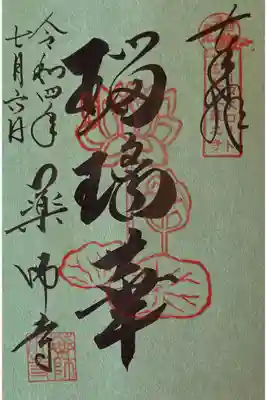 奉拝
瑠璃華
薬師寺
令和四年
七月六日